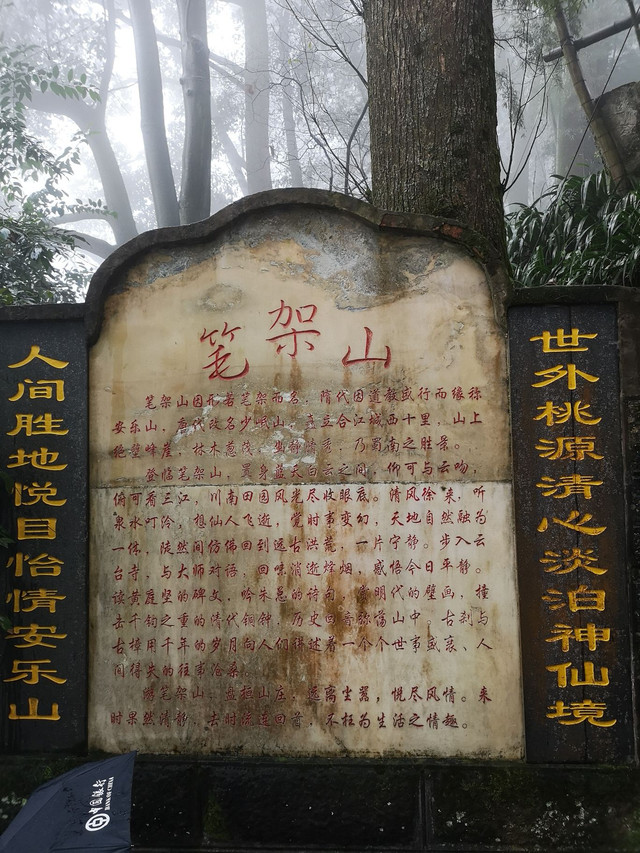 世外桃源清心淡泊神仙境
笔架山
笔架山因形若笔架而名。隋代因道教或行而缘称
安乐山，唐代改名少岷山。立合江城西十里，山上
绝壁峰崖，林木葱茂，乃蜀南之胜景。
登临笔架山，置身蓝天白云之间，仰可与云吻，
俯可看三江，川南田园风光尽收眼底。清风徐来，听
泉水叮泠，想仙人飞逝，觉时事变幻，天地自然融为
一体，陡然间仿佛回到远古洪荒，一片宁静。步入云
台寺，与大师对语，回味消逝烽烟，感悟今日平静。
读黄庭坚的碑文，吟朱总的诗句，赏明代的壁画，撞
击千钧之重的清代铜钟，历史回音弥荡山中。古刹与
古樟用千年的岁月向人们讲述着一个个世事或衰、人
间得失的往事沧桑。
游笔架山，盘桓山庄，远离尘嚣，悦尽风情。来
时果然清静，去时徐连回首，不枉为生活之情趣。
人间胜地悦目怡情安乐山
中国银行
BANK OF CHINA